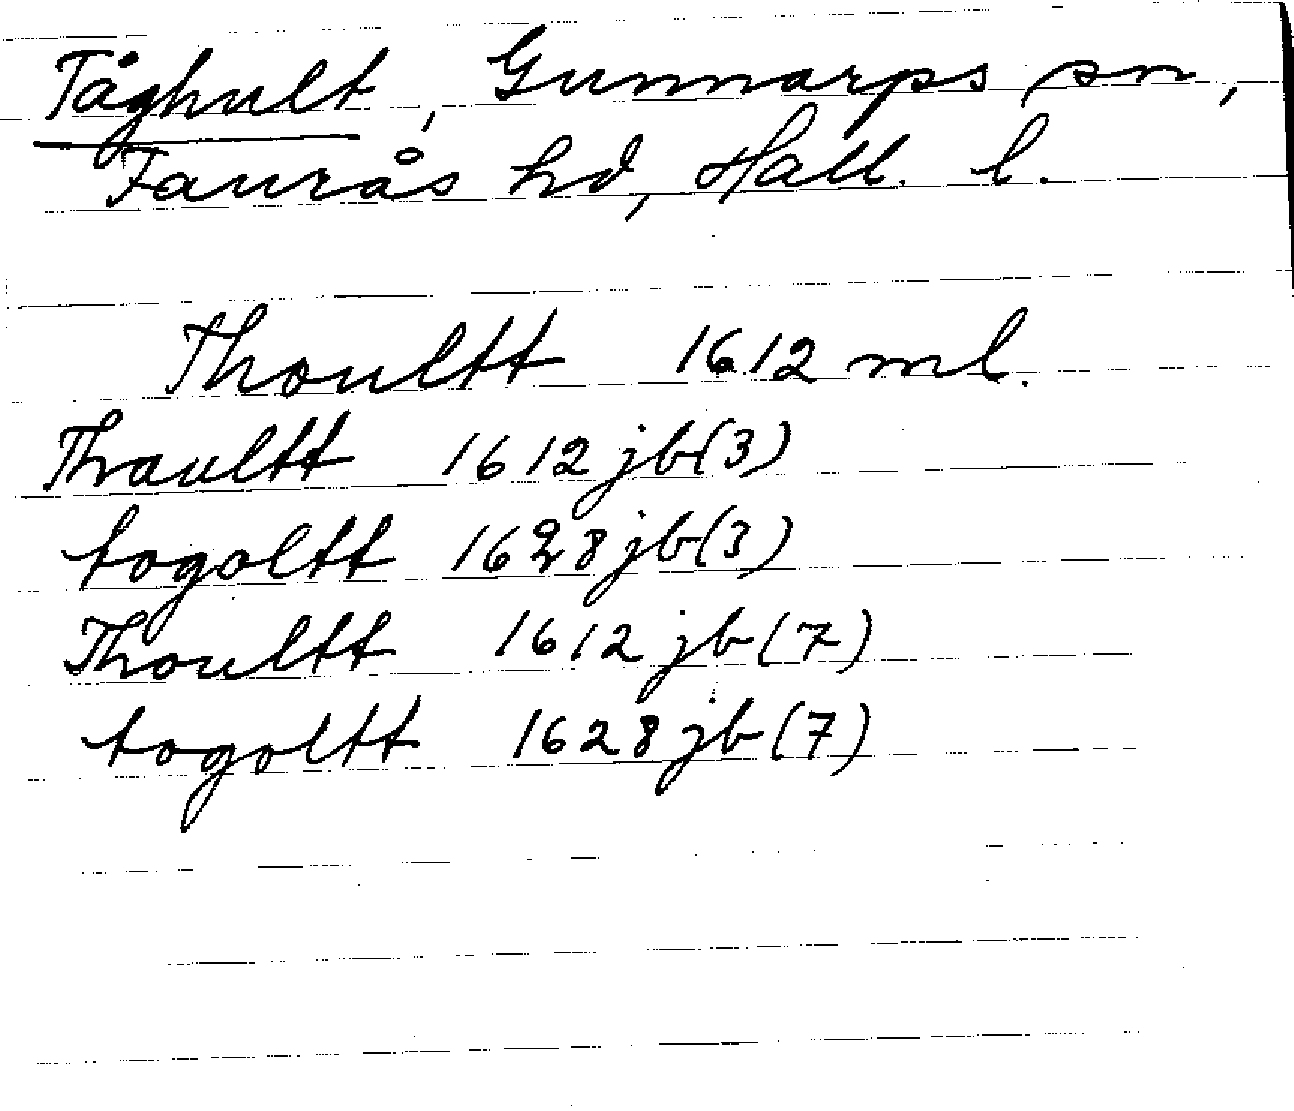 Tåghult, Gunnarps sn,
Faurås hd, Hall. l.
Thoultt 1612 ml.
Thraultt 1612 jb(3)
togoltt 1628 jb(3)
Thoultt 1612 jb(7)
togoltt 1628 jb(7)